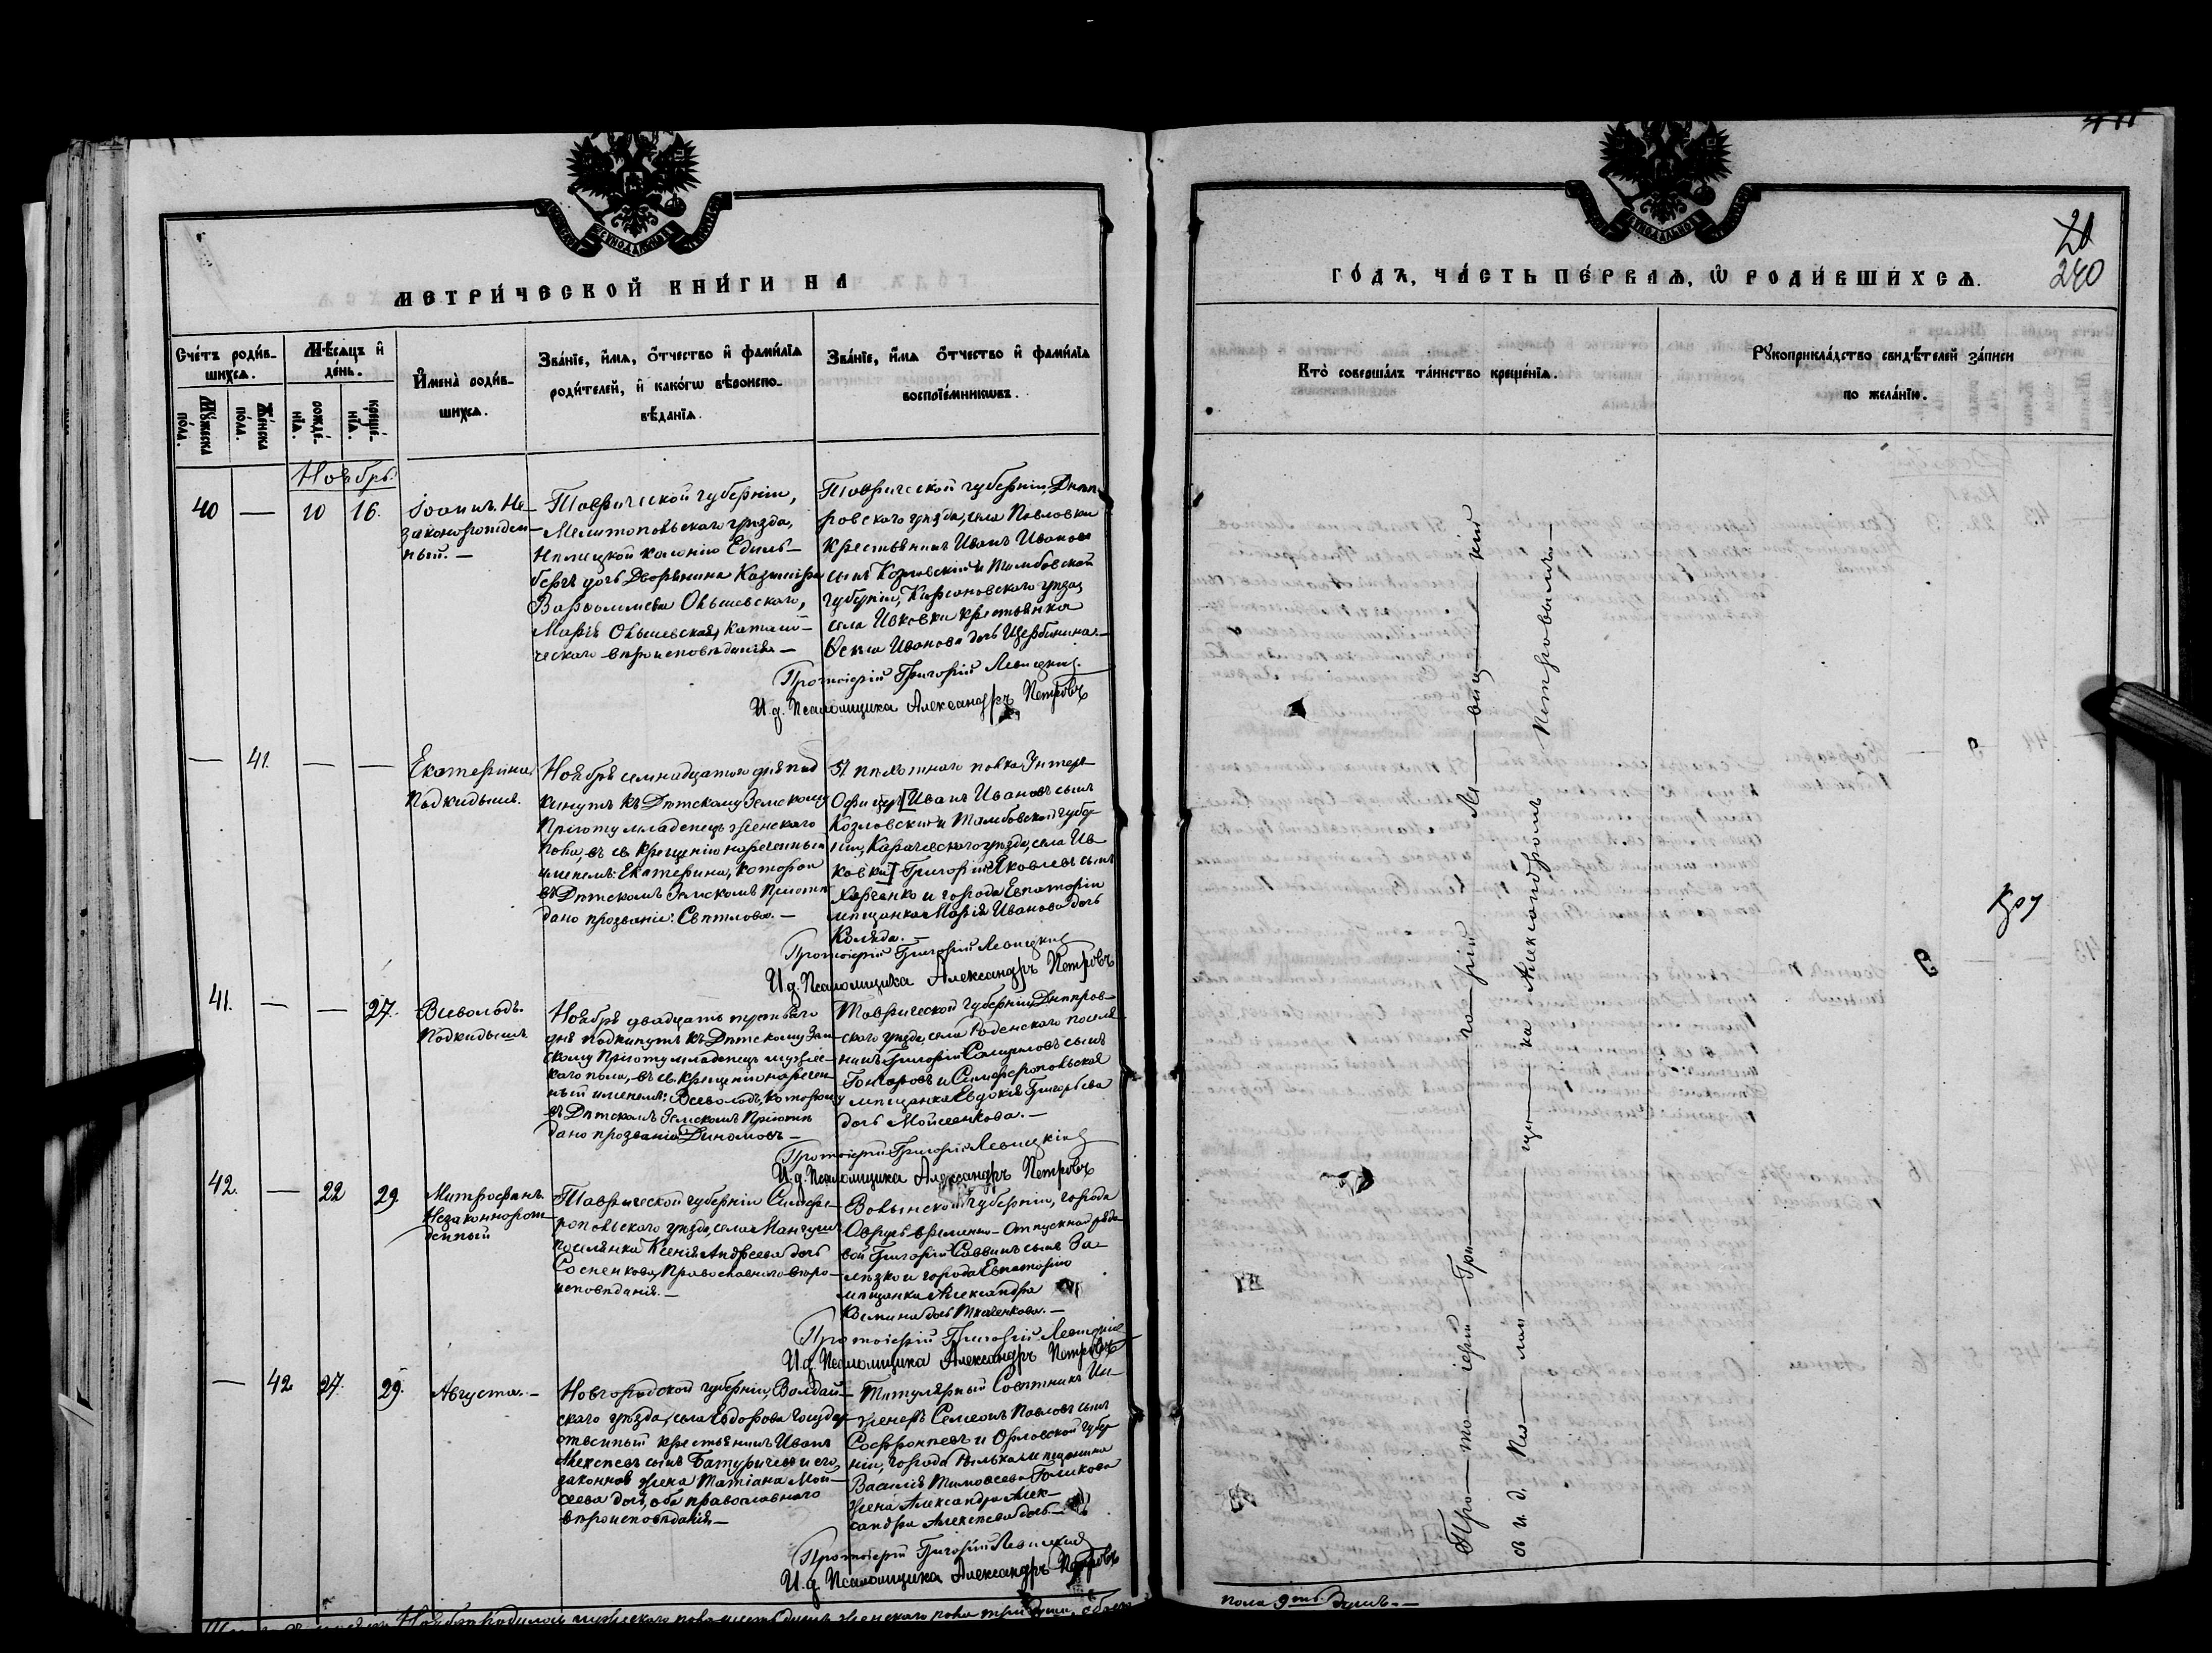 МЕТРИ́ЧЕСКОЙ КНИ́ГИ НА
Сче́тъ роди́в-
шихсѧ.
Мѣ́сѧцъ и҆
де́нь.
И҆мена̀ роди́в-
шихсѧ.
Зва́нїе, и҆́мѧ, ѻ҆́тчество и҆ фами́лїѧ
роди́телей, и҆ како́гѡ вѣроиспо-
вѣ́данїѧ.
Зва́нїе, и҆́мѧ ѻ҆́тчество и҆ фами́лїѧ
воспрїе́мникѡвъ.
Мꙋ́жеска
по́ла.
Же́нска
по́ла.
рожде́-
нїѧ.
креще́-
нїѧ.
Ноябрь.
40 — 10 16.
Іоаннъ. Не-
законорожден-
ный. —
Таврической губерніи,
Мелитопольскаго уѣзда,
Нѣмецкой колоніи
дочь Дворянина Казиміра
Марія католи-
ческаго вѣроисповѣданія. —
Таврической губерніи, Днѣп-
ровскаго уѣзда, села Павловки
крестьянинъ Иванъ Ивановъ
сынъ Козловскій и Тамбовской
губерніи, Кирсановскаго уѣзда,
села Ивковки крестьянка
Иванова дочь Щербинина. —
Протоіерей Григорій Левицкій.
И.д. Псаломщика Александръ Петровъ
— 41. — —
Екатерина
Подкидышъ.
Ноября семнадцатаго дня под
кинутъ къ Дѣтскому Земскому
Пріюту младенецъ женскаго
пола, въ св. крещеніи нареченный
именемъ: Екатерина, которой
въ Дѣтскомъ Земскомъ Пріютѣ
дано прозваніе: Свѣтлова. —
51 пѣхотнаго полка Унтеръ-
Офицеръ [Иванъ Ивановъ сынъ
Козловскій и Тамбовской губер
ніи, уѣзда, села Ив
ковки] Григорій Яковлевъ сынъ
Харченко и города Евпаторіи
мѣщанка Марія Иванова дочь
Коляда. —
Протоіерей Григорій Левицкій
И.д. Псаломщика Александръ Петровъ
41. — — 27.
Всеволодъ.
Подкидышъ
Ноября двадцать третьяго
дня подкинутъ къ Дѣтскому Зем
скому Пріюту младенецъ мужес-
каго пола, въ св. крещеніи наречен-
ный именемъ: Всеволодъ, которому
въ Дѣтскомъ Земскомъ Пріютѣ
дано прозваніе Динамовъ —
Таврической губерніи, Днѣпров-
скаго уѣзда, села Раденскаго поселя
нинъ Григорій Самуиловъ сынъ
Гончаровъ и Симферопольская
мѣщанка Евдокія Григорьева
дочь Мойсеенкова. —
Протоіерей Григорій Левицкій
И.д. Псаломщика Александръ Петровъ
42. — 22 29
Митрофанъ
Незаконнорож-
денный
Таврической губерніи Симфе-
ропольскаго уѣзда, села Мангушъ
поселянка Ксенія Андреева дочь
Сосненкова, Православнаго вѣро-
исповѣданія. —
Волынской губерніи, города
Овручь временно-отпускной рядо
вой Григорій Саввинъ сынъ За-
лѣзко и города Евпаторіи
мѣщанка Александра
Косминa дочь Ткаченкова. —
Протоіерей Григорій Левицкій
И.д. Псаломщика Александръ Петровъ
— 42 27. 29.
Августа. —
Новгородской губерніи, Валдай-
скаго уѣзда, села Ѳедорова Государ
ственный крестьянинъ Иванъ
Алексѣевъ сынъ Батуричевъ и его
законная жена Татіана Мой-
сеева дочь, оба православнаго
вѣроисповѣданія. —
Титулярный Совѣтникъ Ин-
женеръ Семеонъ Павловъ сынъ
Софронѣевъ и Орловской губер
ніи, города мѣщанина
Василія Тимоѳеева Голикова
жена Александра Алек-
сандра Алексѣева дочь. —
Протоіерей Григорій Левицкій
И.д. Псаломщика Александръ Петровъ
Ноябрѣ родилось мужескаго пола шесть душъ, женскаго пола три души, обоего
20
240
ГО́ДЪ, ЧА́СТЬ ПЕ́РВАѦ, Ѽ РОДИ́ВШИХСѦ.
Кто̀ соверша́лъ та́инство креще́нїѧ.
Рꙋкоприкла́дство свидѣ́телей за́писи
по жела́нїю.
Про—то—іерей Гри—го—рій Ле—виц—кій
съ и. д. Пса—лом—щи—ка Александромъ Петровымъ. —
пола 9ть душъ. —